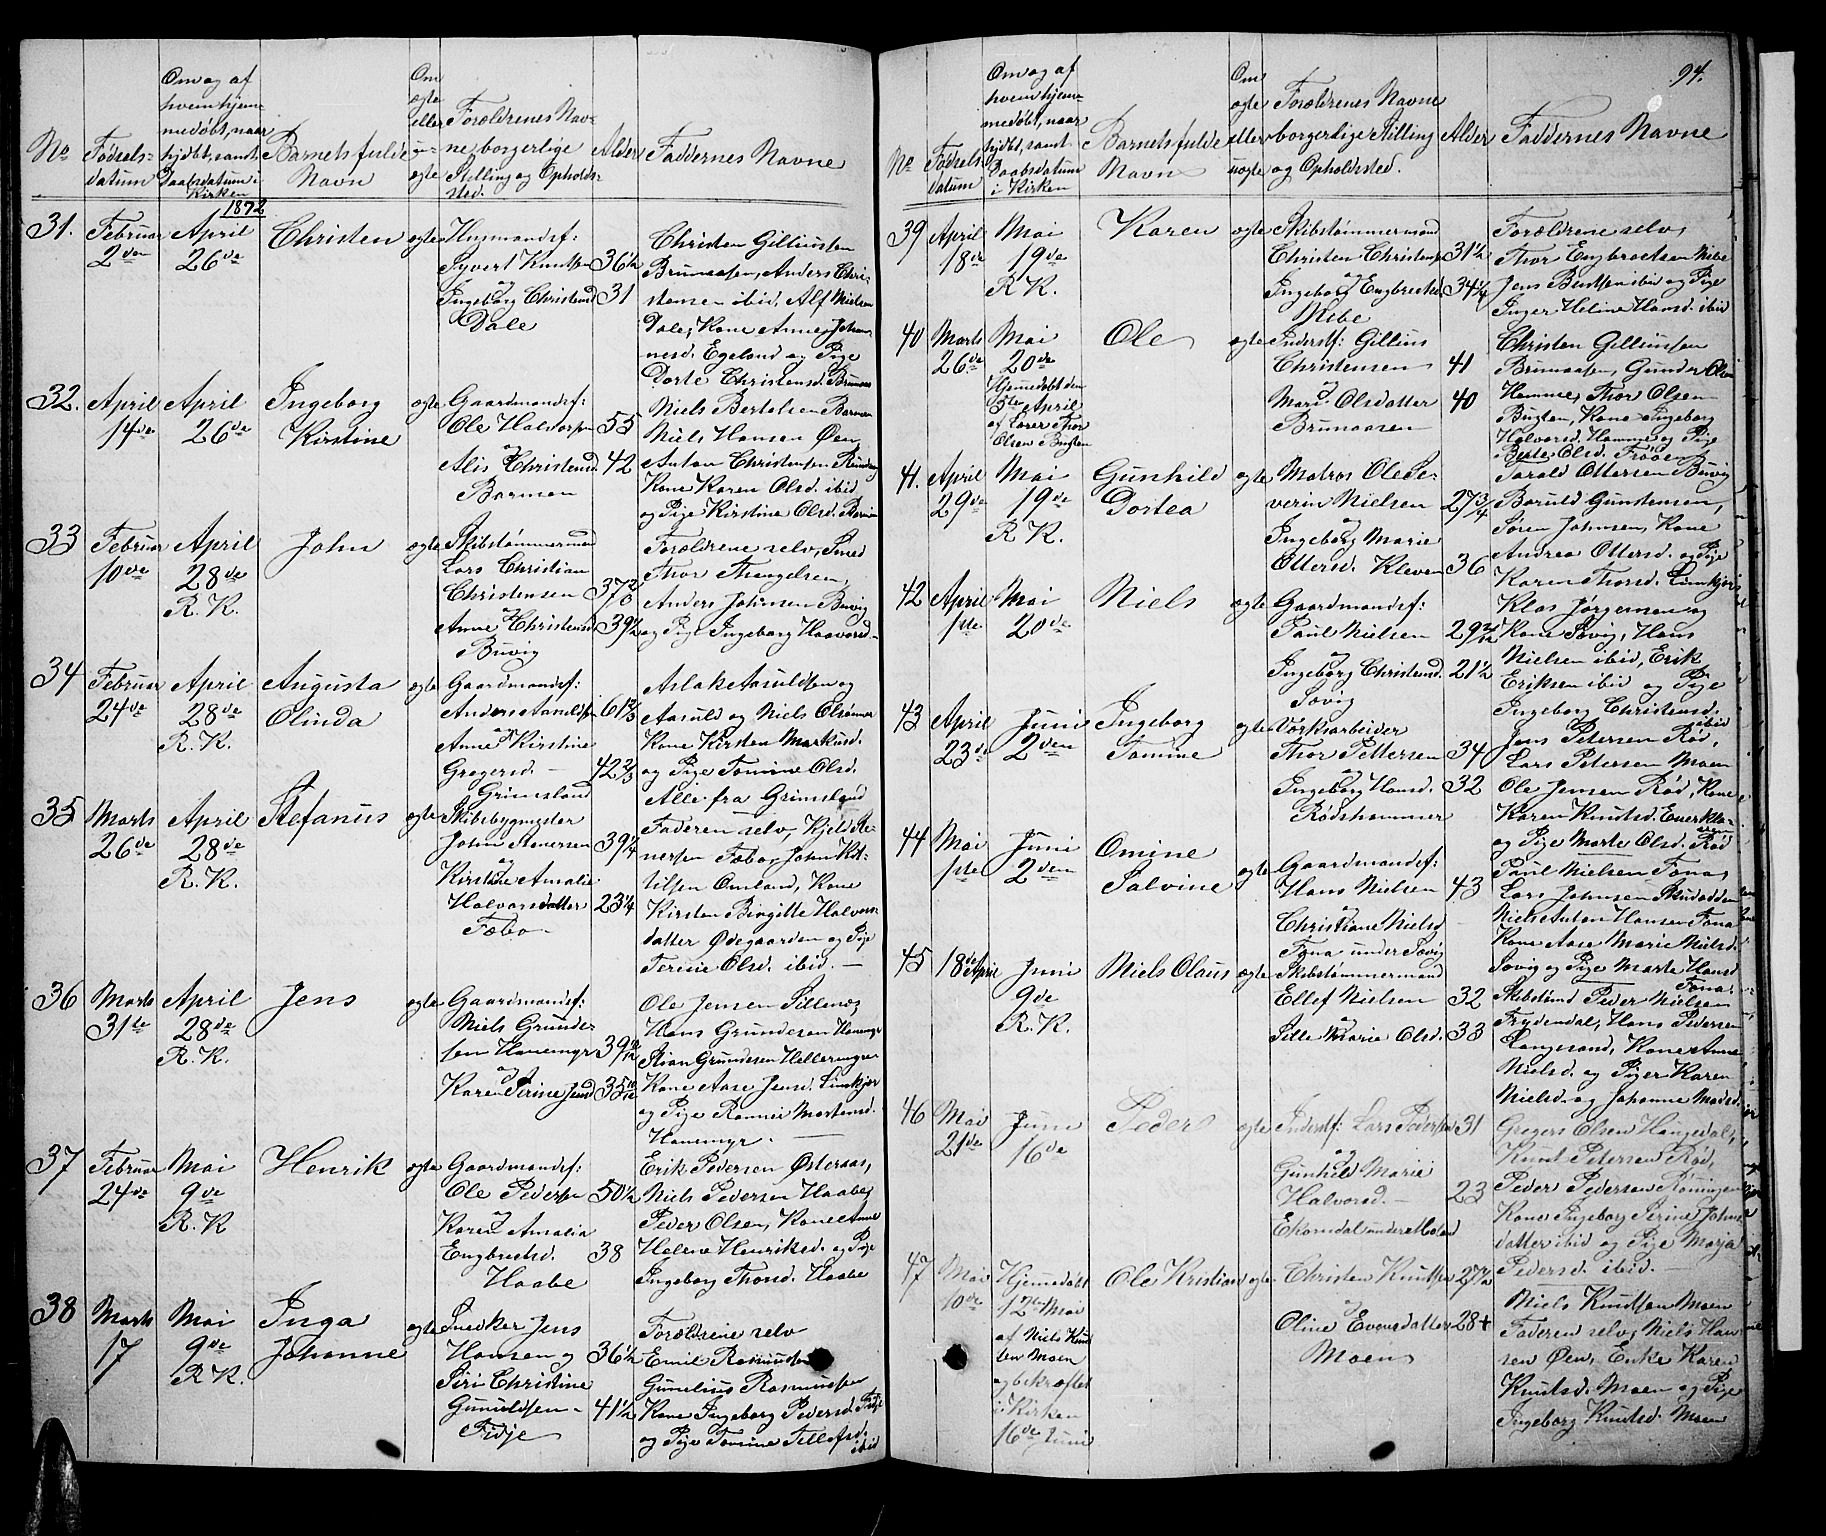 No
Fødsels-
datum
Om og af
hvem hjem-
medøbt, naar
hjdbt, samt
Daabsdatum i
Kirken
Barnets fulde
Navn
Om
ægte
eller
u-
ægte
Forældrenes Nav-
ne, borgerlige
Stilling og Opholds-
sted.
Alder
Faddernes Navne
1872
31.
Februar
2den
April
26de
Christen
ægte
Husmandsf:
Syvert Knudsen
og
Ingeborg Christensd
Dale
36½
31
Christen Gelliusen
Brunaasen, Anders Chri-
stensen ibid, Alf Nielsen
Dale, Kone Anne Johan-
nesd. Egeland og Pige
Dorte Christensd. Brunaas
32.
April
14de
April
26de
Ingeborg
Kirstine
ægte
Gaardmandsf:
Ole Halvorsen
og
Alis Christensd
Barmen
55
42
Niels Bertelsen Barmen
Niels Hansen Øen
Anton Christensen
Kone Karen Olsd. ibid
og Pige Kirstine Olsd. Barmen
33
Februar
10de
April
28de
R. K.
John
ægte
Skibstømmermand
Lars Christian
Christensen
og
Anne Christensd
Buvig
39½
Forældrene selv, Smed
Thor Thengelsen,
Anders Johnsen Buvig
og Pige Ingeborg Haavord-
34
Februar
24de
April
28de
R. K.
Augusta
Olinda
ægte
Gaardmandsf:
Anders Aanulfsen
og
Anne Kirstine
Gregersd. —
Grimsland
61⅔
42⅔
Aslak Aasuldsen og
Aasuld og Niels Olsønner
Kone Kirsten Markusd.
og Pige Tomine Olsd.
Alle fra Grimsland
35
Marts
26de
April
28de
R. K.
Stefanus
ægte
Skibsbygmester
John Stenersen
og
Kirstine Amalie
Halvorsdatter
Fæbo —
39¼
23¼
Faderen selv, Kjeld Ste-
nersen Fæbo, John Ket-
tilsen Omland, Kone
Kirsten Birgitte Halvors-
datter Ødegaarden og Pige
Terine Olsd. ibid. —
36
Marts
31te
April
28de
R. K.
Jens
ægte
Gaardmandsf:
Niels Grunde-
sen Hanemyr
og
Karen Serine Jensd
Ole Jensen
Hans Grundesen Hanemyr
Stian Grundesen Hellermyren
Kone Aase Jensd. Simkjær
og Pige Rannei Mortensd.
Hanemyr. —
37
Februar
24de
Mai
9de
R. K
Henrik
ægte
Gaardmandsf:
Ole Pedersen
og
Karen Amalia
Engbretsd.
Haabe
50½
38
Erik Pedersen Østeraas,
Niels Pedersen Haabe,
Peder Olsen, Kone Anne
Helene Henriksd. og Pige
Ingeborg Thorsd. Haabe
38
Marts
17
Mai
9de
R K.
Inga
Johanne
ægte
Snedker Jens
Hansen og
Siri Christine
Gunuldsen —
Fidje
36½
41½
Forældrene selv
Emil Rasmussen
Gunelius Rasmussen
Kone Ingeborg Pedersd. Fidje
og Pige Tomine Tellefsd.
ibid
94.
No
Fødsels
datum
Om og af
hvem hjem-
medøbt, naar
hjdbt, samt
Daabsdatum
i Kirken
Barnets fulde
Navn
Om
ægte
eller
uægte
Forældrenes Navne
borgerlige Stilling
og Opholdssted.
Alder
Faddernes Navne
39
April
18de
Mai
19de
R K.
Karen
ægte
Skibstømmermand
Christen Christensen
og
Ingeborg Engbretsd.
Ribe
31½
34¼
Forældrene selv,
Thor Engbretsen Ribe
Jens Bentsen ibid og Pige
Inger Heline Hansd. ibid
40
Marts
26de
Mai
20de
Hjemmedøbt den
5te April
af Lærer Thor
Olsen Bugten
Ole
ægte
Inderstf: Gellius
Christensen
og
Mari Olsdatter
Brunaasen
41
40
Christen Gelliusen
Brunaasen, Gunder Olsen
Hamme, Thor Olsen
Bugten, Kone Ingeborg
Halvorsd. Hamme og Pige
Berte Olsd. Frøen
41.
April
29de
Mai
19de
R K.
Gunhild
Dortea
ægte
Matros Ole Se-
verin Nielsen
og
Ingeborg Marie
Ottersd. Kleven
27¾
36
Tarald Ottersen Buvig
Baruld Gunstensen,
Søren Johnsen, Kone
Andrea Ottersd. og Pige
Karen Thorsd. Simkjær
42
April
1ste
Mai
20de
Niels
ægte
Gaardmandsf:
Paul Nielsen
Ingeborg Christensd.
Søvig
21½
Klas Jørgensen og
Kone Søvig, Hans
Nielsen ibid, Erik
Eriksen ibid og Pige
Ingeborg Christensd.
ibid
43
April
23de
Juni
2den
Ingeborg
Tomine
ægte
Værksarbeider
Thor Pettersen
og
Ingeborg Hansd.
Rødshammer
34
32
Jens Petersen Rød,
Lars Petersen Moen
Ole Jensen Rød, Kone
Karen Knudsd.
og Pige Marte Olsd. Rød
44
Mai
1ste
Juni
2den
Omine
Salvine
ægte
Gaardmandsf:
Hans Nielsen
og
Christiane Nielsd
Fona under Søvig
43
Paul Nielsen Fona,
Lars Johnsen Skudodden
Niels Anton Hansen Fona
Kone Aase Marie Nielsd.
Søvig og Pige Marte Hansd
Fona.
45
18de April
Juni
9de
R. K.
Niels Olaus
ægte
Skibstømmermand
Ellef Nielsen
og
Sille Marie Olsd.
32
33
Peder Nielsen
Frydendal, Hans Pedersen
Langesand, Kone Anne
Nielsd. og Piger Karen
Nielsd. og Johanne Madsd.
46
Mai
21de
Juni
16de
Peder
ægte
Inderstf: Lars Pedersen
og
Gunhild Marie
Halvorsd. —
Ekorndal under Moland
31
23
Gregers Olsen Haugedal,
Knud Petersen Rød,
Peder Pedersen Røningen
Kone Ingeborg Serine Johns-
datter ibid og Pige Marja
Pedersd. ibid. —
47
Mai
10de
Hjemmedøbt
12te Mai
af Niels Knud-
sen Moen
og bekræftet
i Kirken
16de Juni
Ole Kristian
ægte
Christen Knudsen
og
Oline Evensdatter
Moen
27½
28+
Niels Knudsen Moen
Faderen selv, Niels Han-
sen Øen, Enke Karen
Knudsd. Moen og Pige
Ingeborg Knudsd. Moen